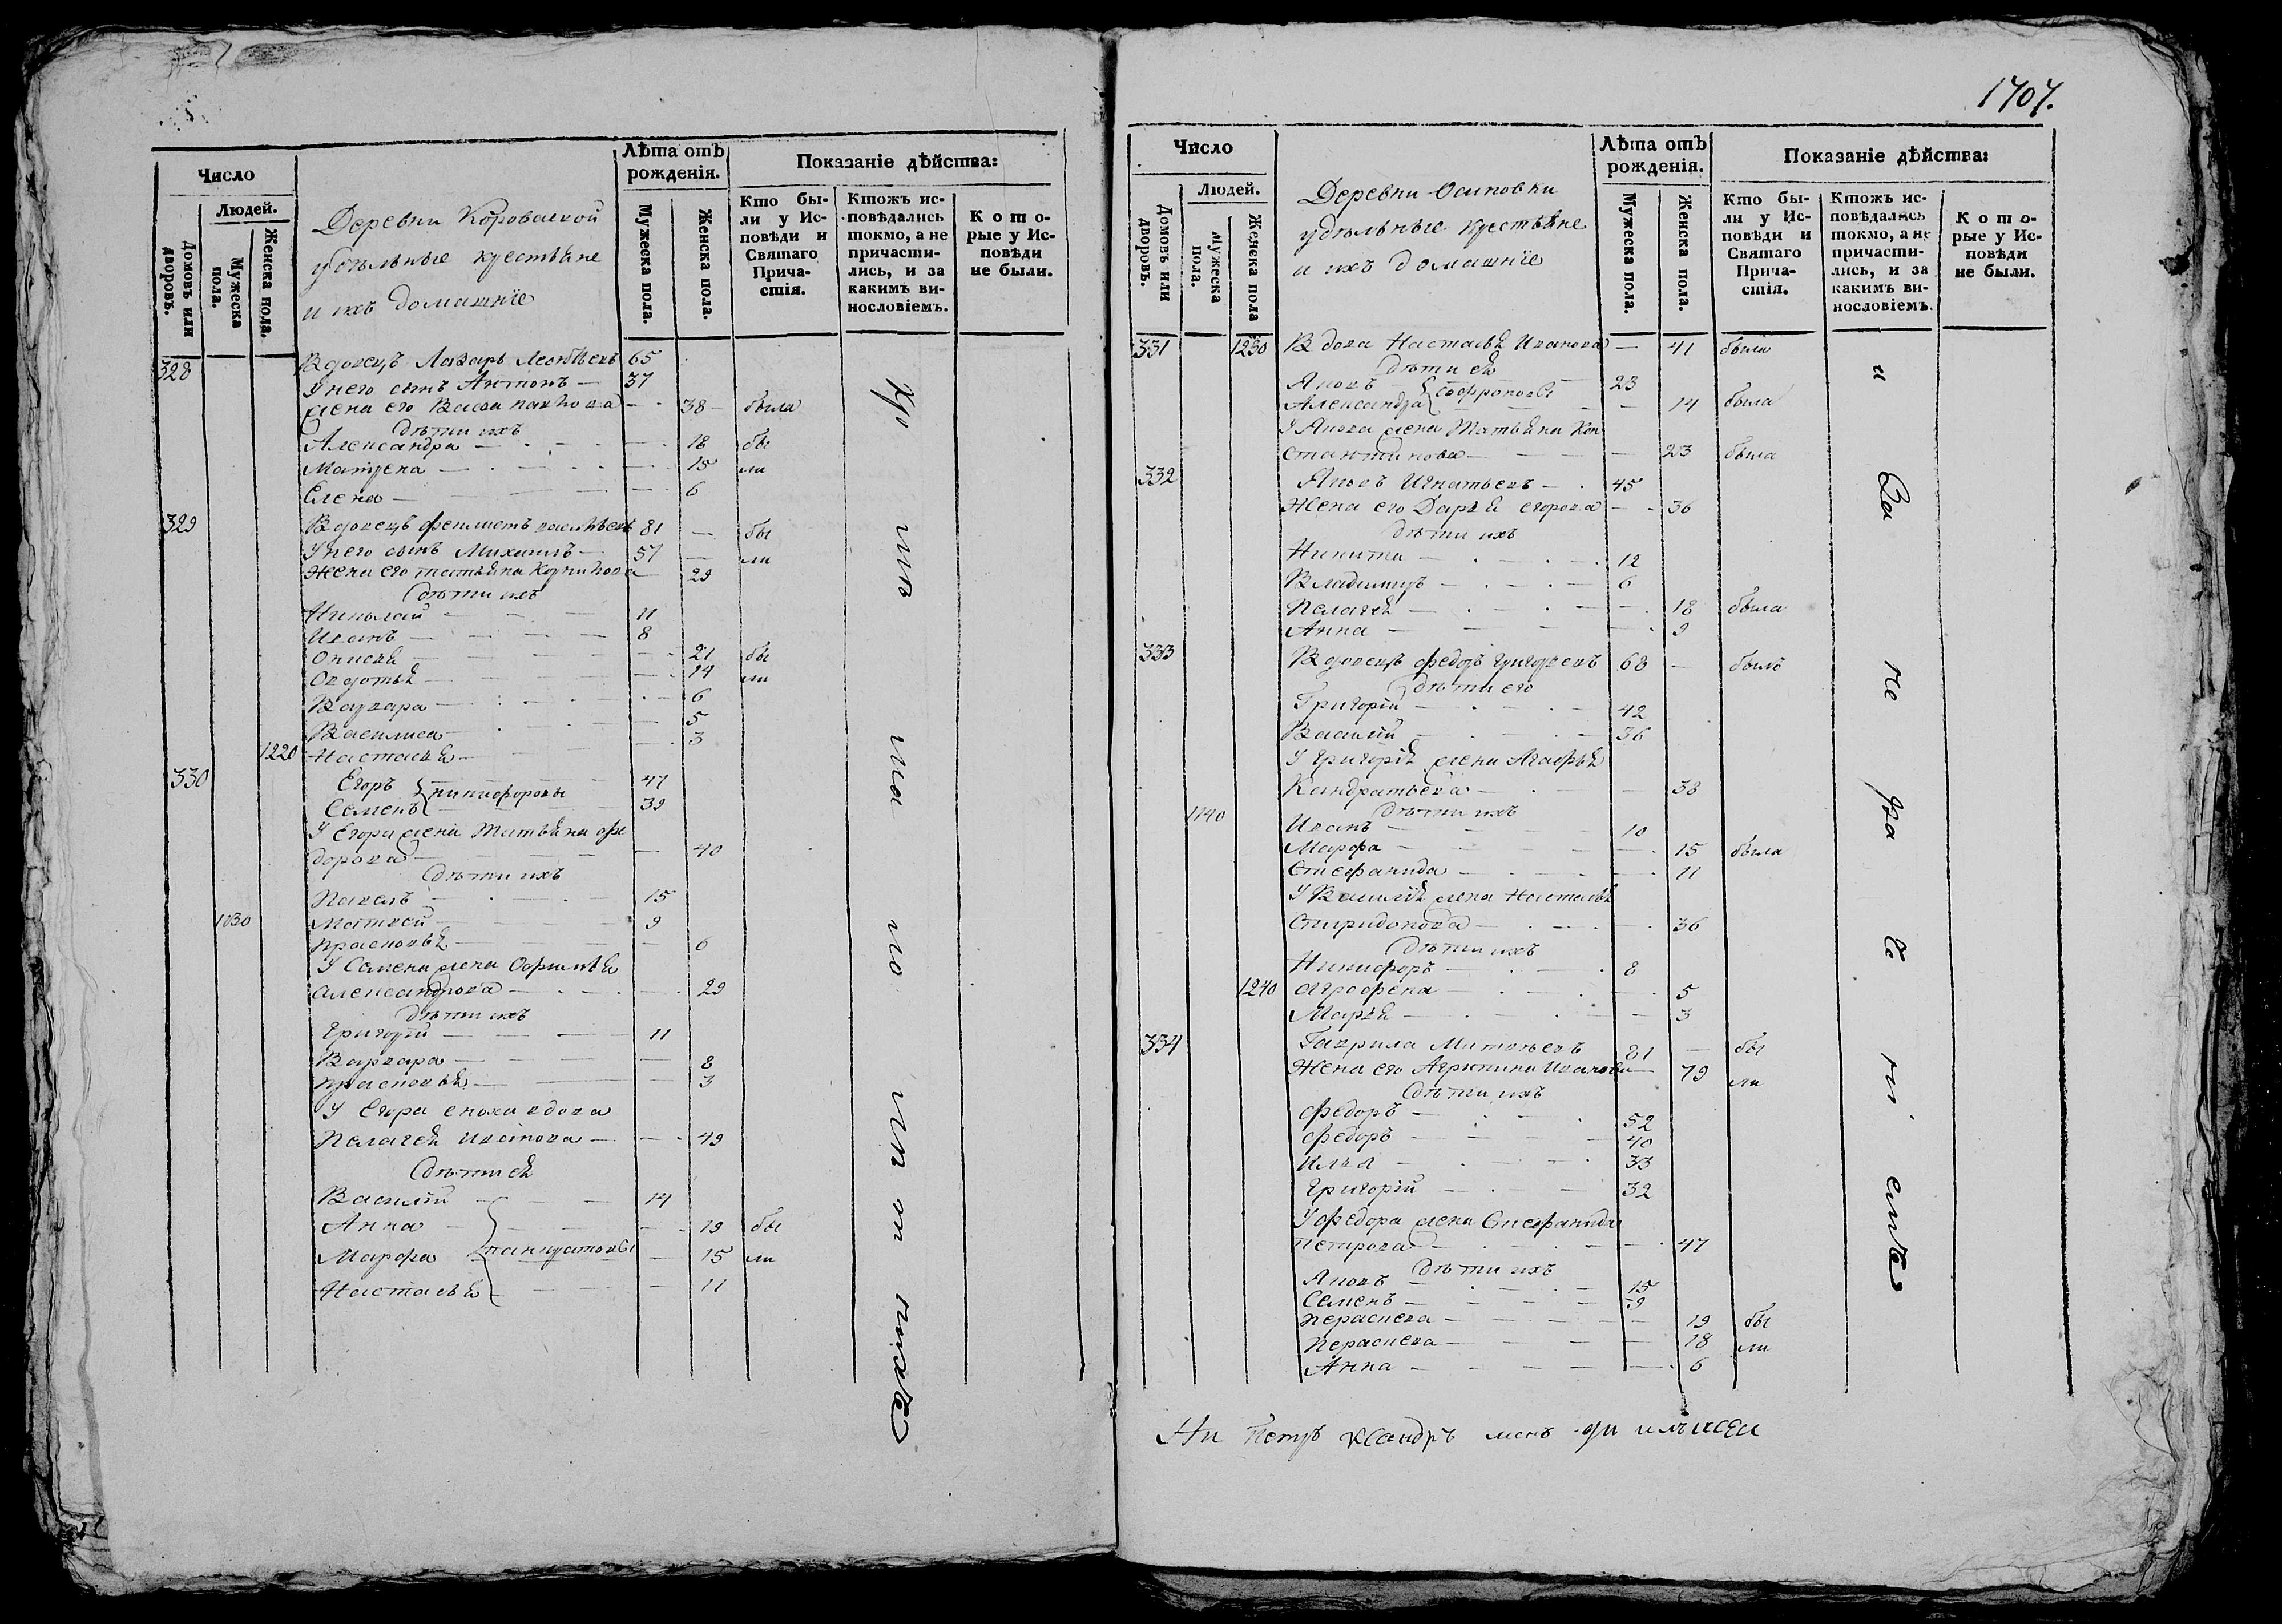 Число
Людей.
Домовъ или дворовъ.
Мужеска пола.
Женска пола.
Деревни Короваской
удѣльные крестьяне
и ихъ домашніе
Лѣта отъ рожденія.
Мужеска пола.
Женска пола.
Показаніе дѣйства:
Кто были у Исповѣди и Святаго Причастія.
Ктожъ исповѣдались токмо, а не причастились, и за какимъ винословіемъ.
Которые у Исповѣди не были.
328 Вдовецъ Лазарь Леонтьевъ 65
У него сынъ Антонъ 37
жена его 38 была
Дѣти ихъ
Александра 18 бы
Матрена 15 ли
Елена 6
329 Вдовецъ 81 бы
У него сынъ Михаилъ 57 ли
Жена его татьяна 29
Дѣти ихъ
Николай 11
Иванъ 8
Онисья 21 бы
Овдотья 14 ли
Варвара 6
Василиса 5
1220 Настасья 3
330 Егоръ 47
Семенъ никифоровы 39
У Егора жена Татьяна фе
дорова 40
Дѣти ихъ
Павелъ 15
1130 Матвей 9
прасковья 6
У Семена жена Офимья
александрова 29
Дѣти ихъ
григорій 11
Варвара 8
прасковья 3
У Егора сноха вдова
Пелагея 49
Дѣти ея
Василій 14
Анна 19 бы
Марфа панкратовы 15 ли
Настасья 11
1707.
Число
Людей.
Домовъ или дворовъ.
Мужеска пола.
Женска пола
Деревни Осиповки
удѣльные крестьяне
и ихъ домашніе
Лѣта отъ рожденія.
Мужеска пола.
Женска пола.
Показаніе дѣйства:
Кто были у Исповѣди и Святаго Причастія.
Ктожъ исповѣдались токмо, а не причастились, и за какимъ винословіемъ.
Которые у Исповѣди не были.
331 1230 Вдова Настасья Иванова 41 была
Дѣти ея
Яковъ 23
Александра софроновы 14 была
У Якова жена Татьяна Кон
стантинова 23 была
332 Яковъ Игнатьевъ 45
Жена его Дарья егорова 36
Дѣти ихъ
Никита 12
Владимиръ 6
Пелагея 18 была
Анна 9
333 Вдовецъ федоръ григорьевъ 68 былъ
Дѣти его
Григорій 42
Василій 36
У Григорія жена Агафья
Кандратьева 38
1140 Дѣти ихъ
Иванъ 10
Марфа 15 была
Стефанида 11
У Василія жена Настасья
Спиридонова 36
Дѣти ихъ
Никифоръ 8
1240 агрофена 5
Марья 3
334 Гаврила 81 бы
Жена его Агрипина Иванова 79 ли
Дѣти ихъ
федоръ 52
федоръ 40
Илья 33
григорій 32
У федора жена Стефанида
петрова 47
Дѣти ихъ
Яковъ 15
Семенъ 9
параскева 19 бы
параскева 18 ли
Анна 6